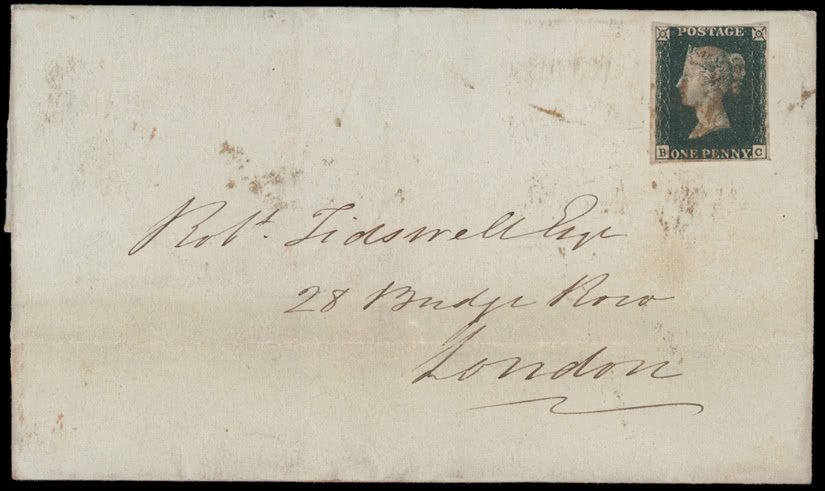 POSTAGE
B ONE PENNY C
Robt. Tidswell Esqr
28 Budge Row
London